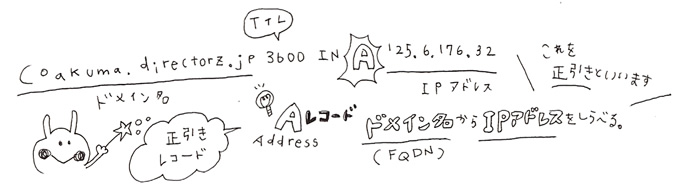 TTL
coakuma.directorz.jp 3600 IN A 125.6.176.32
ドメイン名
IPアドレス
これを
正引きといいます
正引き
レコード
Aレコード
Address
ドメイン名からIPアドレスをしらべる。
(FQDN)